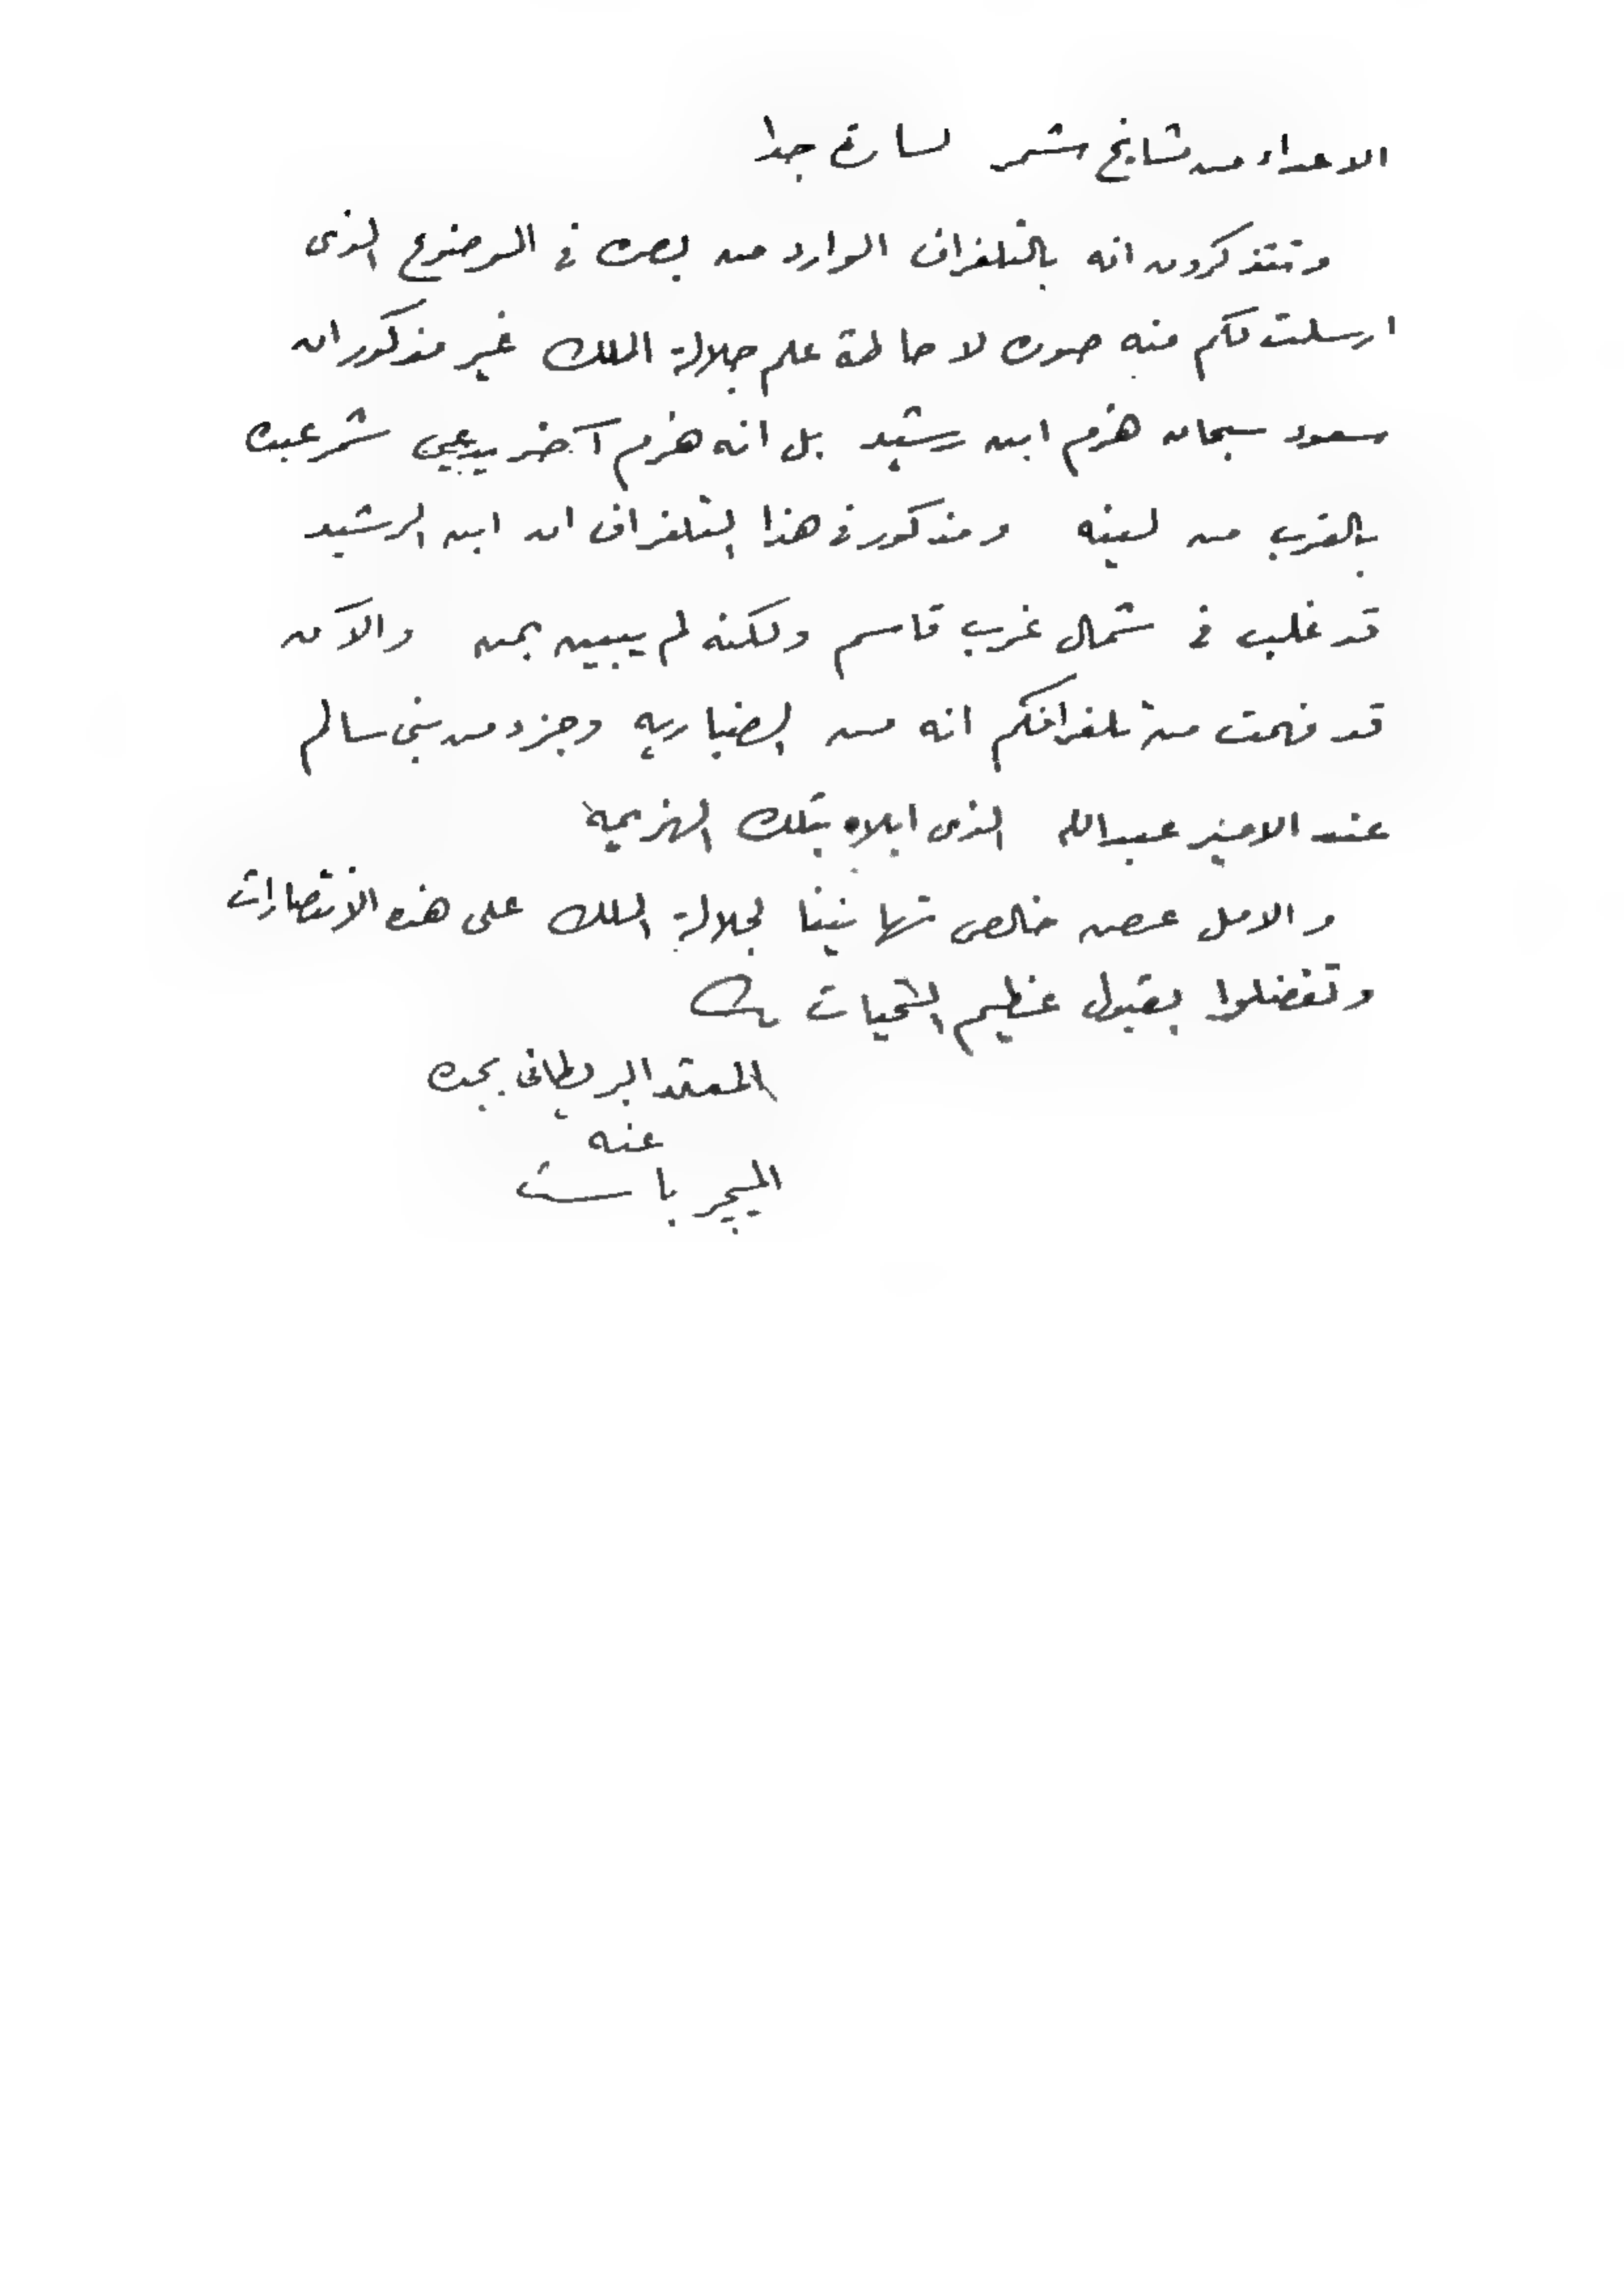 الاعداء من مشايخ شمر لسارة جدا
وتتذكرون انه بالتلغراف الوارد من بصره في الموضوع الذى
ارسلت لكم منه صوره لاحاطة علم جلالة الملك غير مذكور ان
سعود سبحان هزم ابن رشيد بل انه هزم آخر يدعى شمر عبده
بالقرب من لينه ومذكور في هذا التلغراف ان ابن الرشيد
قد غلب في شمال غرب قاسم ولكنه لم يبين بمن والآن
قد فهمت من تلغرافكم انه من الضباريه وجزء من بني سالم
عند الامير عبدالله الذى ابلاه بتلك الهزيمة
والامل عرض خالص تهانينا لجلالة الملك على هذه الانتصارات
وتفضلوا بقبول عظيم التحيات
المعتمد البريطانى بجده
عنه
الميجر باست